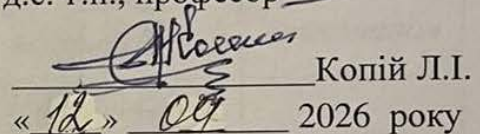 д.с. г.н., професор
Копій Л.І.
« 12 » 09 2026 року